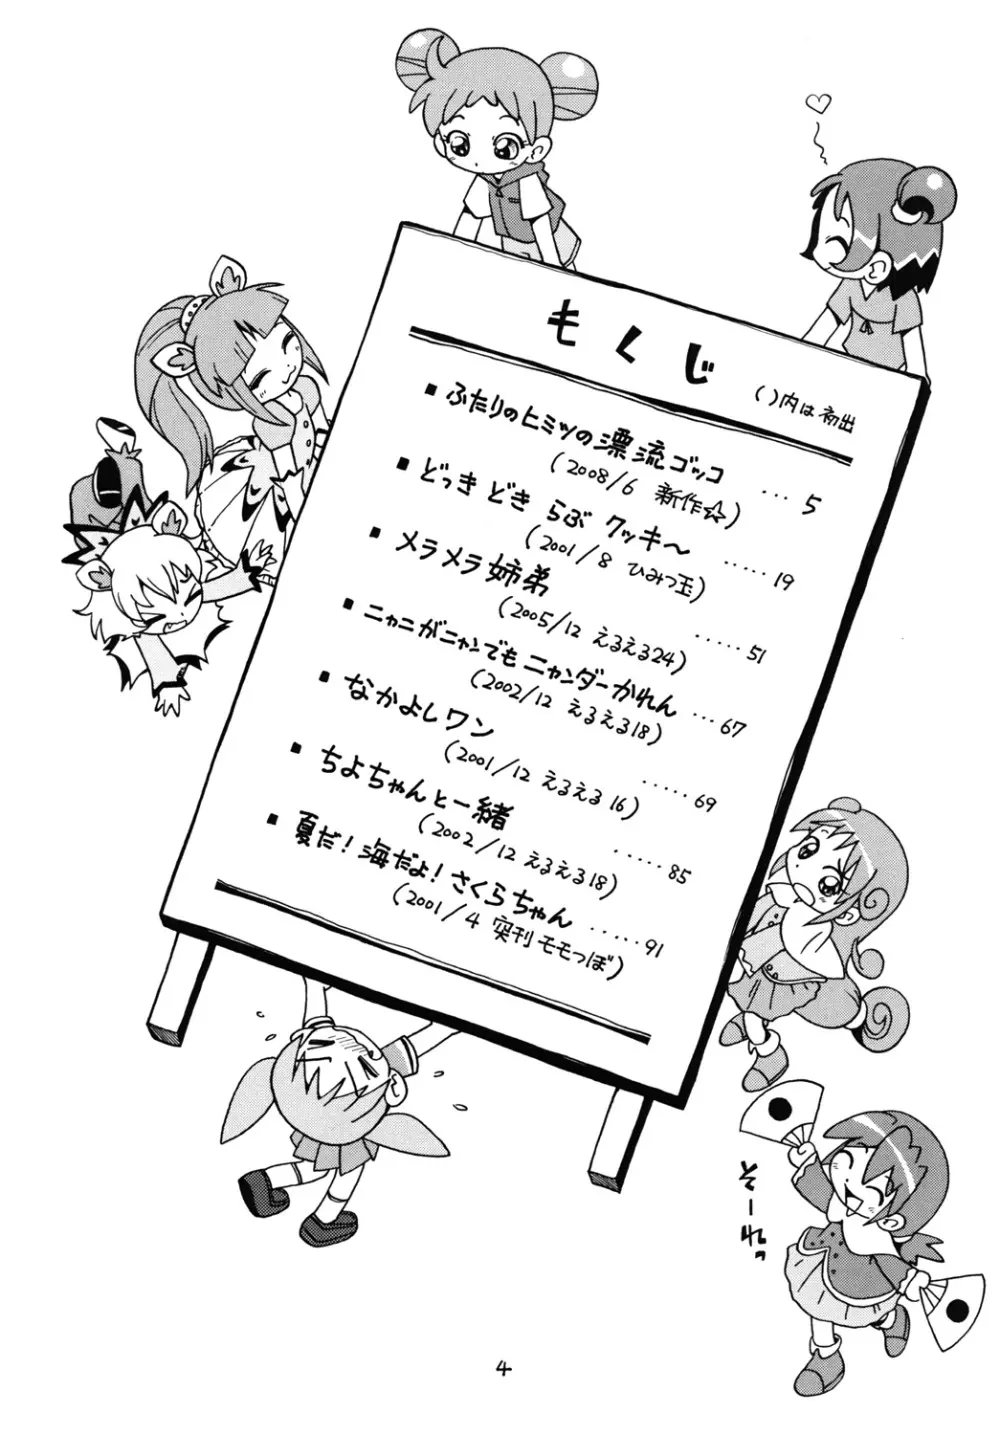 もくじ
( )内は初出
■ ふたりのヒミツの漂流ゴッコ ･･･ 5
(2008/6 新作☆)
■ どっきどき らぶ クッキ～ ･････ 19
(2001/8 ひみつ玉)
■ メラメラ姉弟 ･････ 51
(2005/12 えるえる24)
■ ニャニがニャンでもニャンダーかれん ･･･ 67
(2002/12 えるえる18)
■ なかよしワン ･････ 69
(2001/12 えるえる16)
■ ちよちゃんと一緒 ･････ 85
(2002/12 えるえる18)
■ 夏だ!海だよ!さくらちゃん ･････ 91
(2001/4 突刊モモっぽ)
そーれっ
4